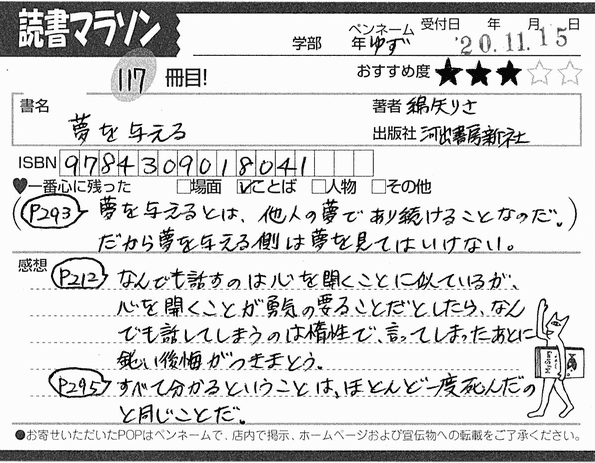 読書マラソン
学部 年 ペンネーム ゆず 受付日 年 月 日 '20.11.15
117 冊目! おすすめ度 ★★★☆☆
書名 夢を与える
著者 綿矢りさ
出版社 河出書房新社
ISBN 9784309018041
♥一番心に残った □場面 ☑ことば □人物 □その他
(P293 夢を与えるとは、他人の夢であり続けることなのだ。)
だから夢を与える側は夢を見てはいけない。
感想 P212 なんでも話すのは心を開くことに似ているが、
心を開くことが勇気の要ることだとしたら、なん
でも話してしまうのは惰性で、言ってしまったあとに
鈍い後悔がつきまとう。
P295 すべて分かるということは、ほとんど一度死んだの
と同じことだ。
●お寄せいただいたPOPはペンネームで、店内で掲示、ホームページおよび宣伝物への転載をご了承ください。